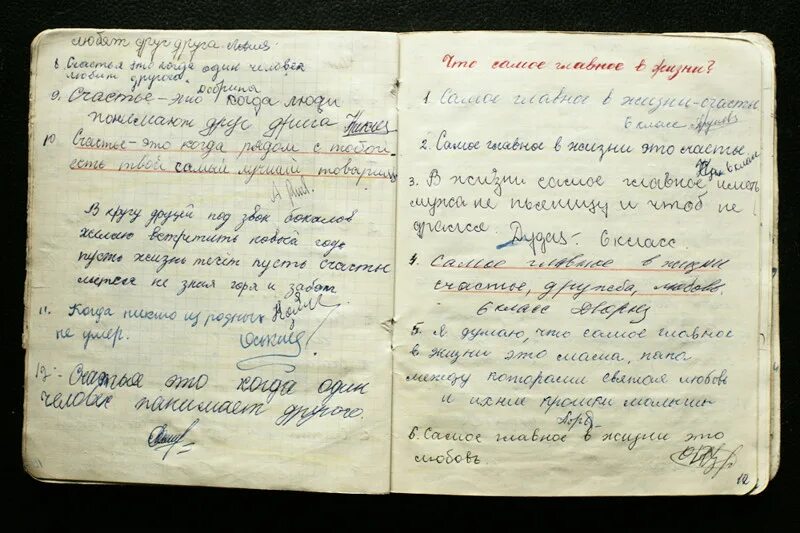 любят друг друга.
8. Счастья это когда один человек
любит другого.
9. Счастье – это когда люди
понимают друг друга
10 Счастье – это когда рядом с тобой
есть твой самый лучший товарищ
В кругу друзей под звок бокалов
желаю встретить новый годь
пусть жизнь течёт пусть счастьи
метсея не зная горя и забот
11. Когда никто из родных
не умер.
12. – Счатье это когда один
человек панимает другого.
Что самое главное в жизни?
1. Самое главное в жизни – счастье
6 класс
2. Самое главное в жизни это счастье
3. В жизни самое главное иметь
мужа не пьеницу и чтоб не
дрался. Дудаз – 6 класс.
4. Самое главное в жизни
счастье, дружба, любовь.
6 класс Дворнец
5. Я думаю, что самое главное
в жизни это мама, папа
между которами святая любовь
и ихние крошки малыши
6. Самое главное в жизни это
любовь.
12